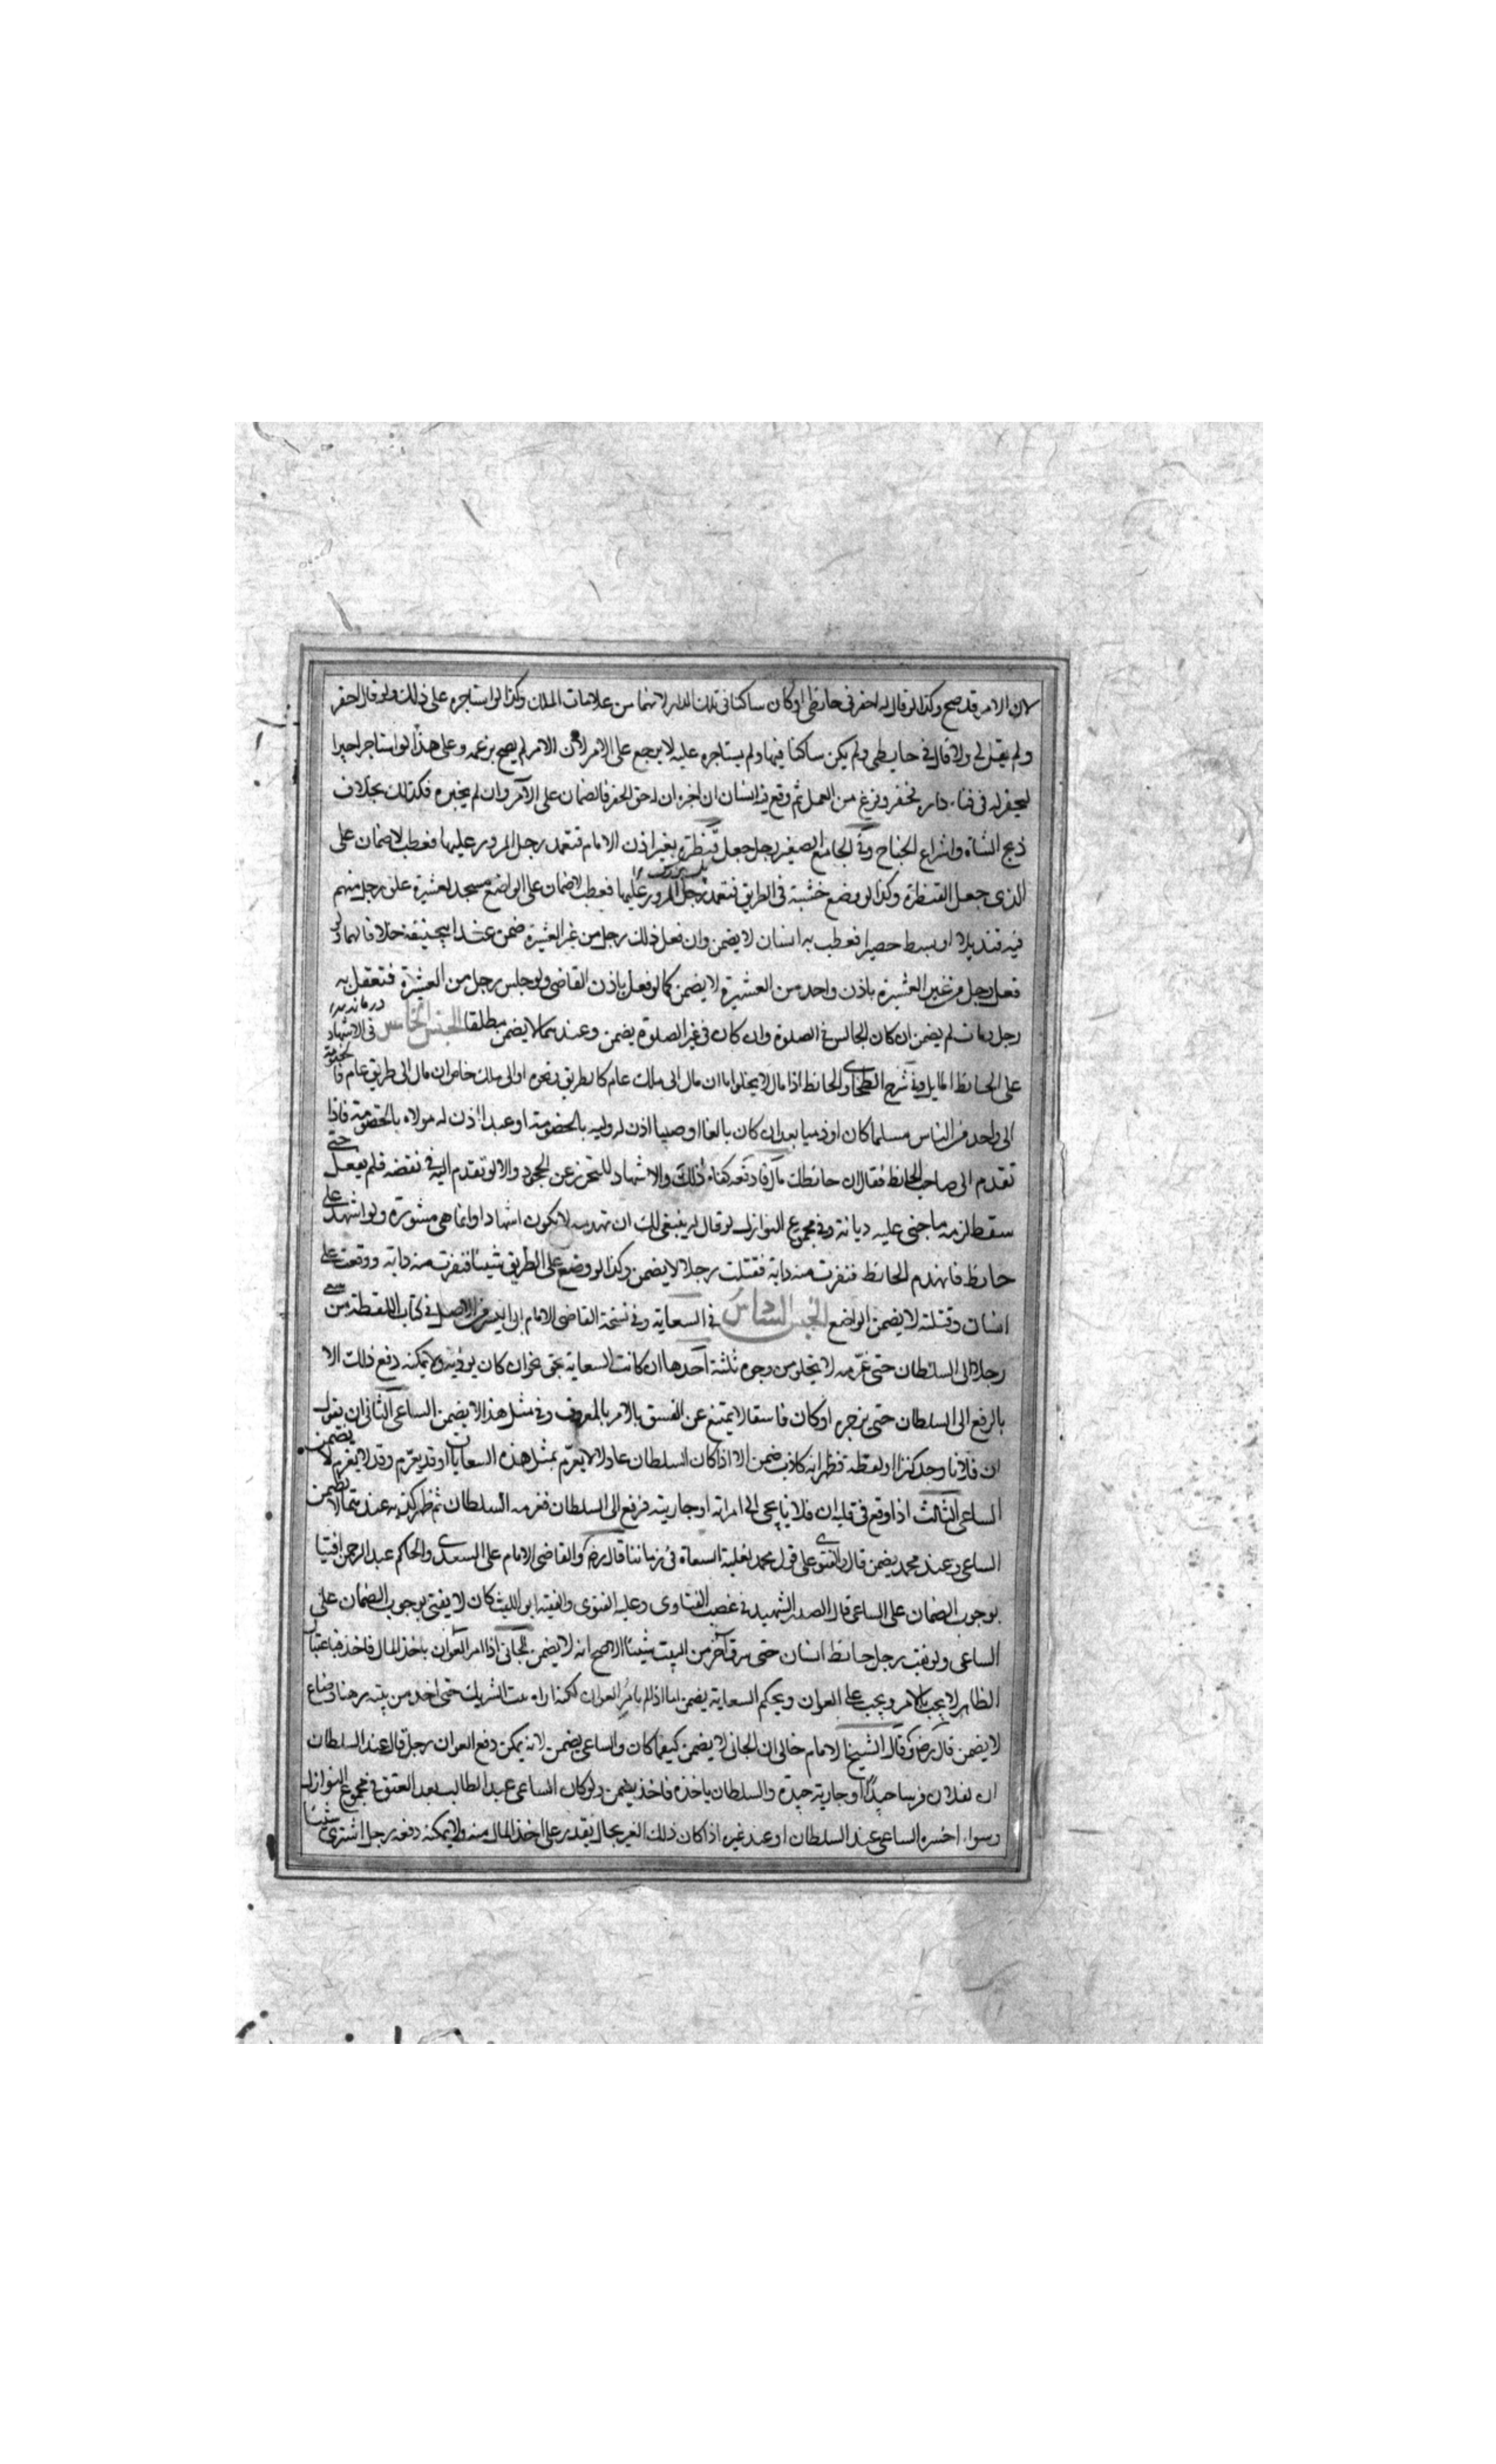 لان الامر قد صح وكذا لو قال له احفر في حائطي او كان ساكنا في تلك الدار لانهما من علامات الملك وكذا لو استاجره على ذلك ولو قال احفر
ولم يقل لي ولا قال في حايطي ولم يكن ساكنا فيها ولم يستاجره عليه لا يرجع على الامر لان الامر لم يصح بزعمه وعلى هذا لو استاجر اجيرا
ليحفر له في فناء داره فحفر وفرغ من العمل ثم وقع فيه انسان ان اخبره ان له حق الحفر فالضمان على الآمر وان لم يخبره فكذلك بخلاف
ذبح الشاة واشراع الجناح وفي الجامع الصغير رجل جعل قنطرة بغير اذن الامام فتعمد رجل المرور عليها فعطب لا ضمان على
الذي جعل القنطرة وكذا لو وضع خشبة في الطريق فتعمد رجل المرور عليها فعطب لا ضمان على الواضع مسجد لعشيرة علق رجل منهم
فيه قنديلا او بسط حصيرا فعطب به انسان لا يضمن وان فعل ذلك رجل من غير العشيرة ضمن عند ابيحنيفة خلافا لهما ولو
فعل رجل من غير العشيرة باذن واحد من العشيرة لا يضمن كما لو فعل باذن القاضي ولو جلس رجل من العشيرة فتعقل به
رجل ومات لم يضمن ان كان الجالس في الصلوة وان كان في غير الصلوة يضمن وعندهما لا يضمن مطلقا الجنس الخامس في الاشهاد
على الحائط المايل وفي شرح الطحاوي الحائط اذا مال لا يخلوا اما ان مال الى ملك عام كالطريق ونحوه او الى ملك خاص ان مال الى طريق عام فالخصومة
الى واحد من الناس مسلما كان او ذميا بعد ان كان بالغا او صبيا اذن له وليه بالخصومة او عبدا اذن له مولاه بالخصومة فاذا
تقدم الى صاحب الحائط فقال ان حائطك مال فارفعه كفاه ذلك والاشهاد للتحرز عن الجحود والا لو تقدم اليه في نقضه فلم يفعل حتى
سقط لزمه ما جنى عليه ديانة وفي مجموع النوازل لو قال له ينبغي لك ان تهدمه لا يكون اشهادا وانما هي مشورة ولو اشهد على
حائط فانهدم الحائط فنفرت منه دابة فقتلت رجلا لا يضمن وكذا لو وضع على الطريق شيئا فنفرت منه دابة ووقعت على
انسان وقتلته لا يضمن الواضع الجنس السادس في السعاية وفي نسخة القاضي الامام من الاصل في كتاب اللقطة من سعى
رجلا الى السلطان حتى غرمه لا يخلو من وجوه ثلثة احدها ان كانت السعاية بحق نحو ان كان يؤذيه ولا يمكنه دفع ذلك الا
بالرفع الى السلطان حتى يزجره او كان فاسقا لا يمتنع عن الفسق بالامر بالمعروف وفي مثل هذا لا يضمن الساعي الثاني ان يقول
ان فلانا وجد كنزا او لقطة فظهر انه كاذب ضمن الا اذا كان السلطان عادلا لا يغرم بمثل هذه السعايات او قد يغرم وقد لا يغرم لا يضمن
الساعي الثالث اذا وقع في قلبه ان فلانا يجي الى امراته او جاريته فرفع الى السلطان فغرمه السلطان ثم ظهر كذبه عندهما لا يضمن
الساعي وعند محمد يضمن قال والفتوى على قول محمد لغلبة السعاة في زماننا قال رضه والقاضي الامام علي السعدي والحاكم عبد الرحمن افتيا
بوجوب الضمان على الساعي قال الصدر الشهيد في غصب الفتاوى وعليه الفتوى والفقيه ابو الليث كان لا يفتي بوجوب الضمان على
الساعي ولو نقب رجل حائط انسان حتى سرق آخر من البيت شيئا الاصح انه لا يضمن الجاني اذا امر العوان باخذ المال فاخذ فباعتبار
الظاهر لا يجب بالامر ويجب على العوان وبحكم السعاية يضمن اما اذا لم يامر العوان لكنه اراه بيت الشريك حتى اخذ من بيته رهنا وضاع
لا يضمن قال رضه وقال الشيخ الامام خالي ان الجاني لا يضمن كيفما كان والساعي يضمن لانه يمكن دفع العوان رجل قال عند السلطان
ان لفلان فرسا جيدا او جارية جيدة والسلطان ياخذه فاخذ يضمن ولو كان الساعي عبدا لطالب بعد العتق في مجموع النوازل
وسواء اخبره الساعي عند السلطان او عند غيره اذا كان ذلك الغير بحال يقدر على اخذ المال منه ولا يمكنه دفعه رجل اشترى شيئا